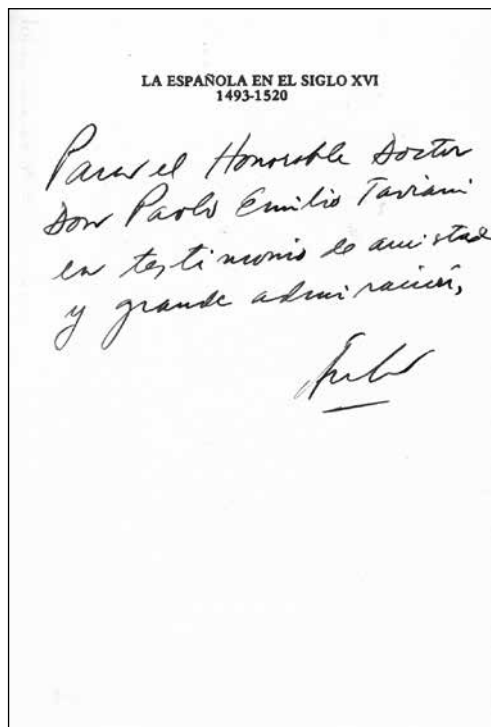 LA ESPAÑOLA EN EL SIGLO XVI
1493-1520
Para el Honorable Doctor
Don Paolo Emilio Taviani
en testimonio de amistad
y grande admiración,